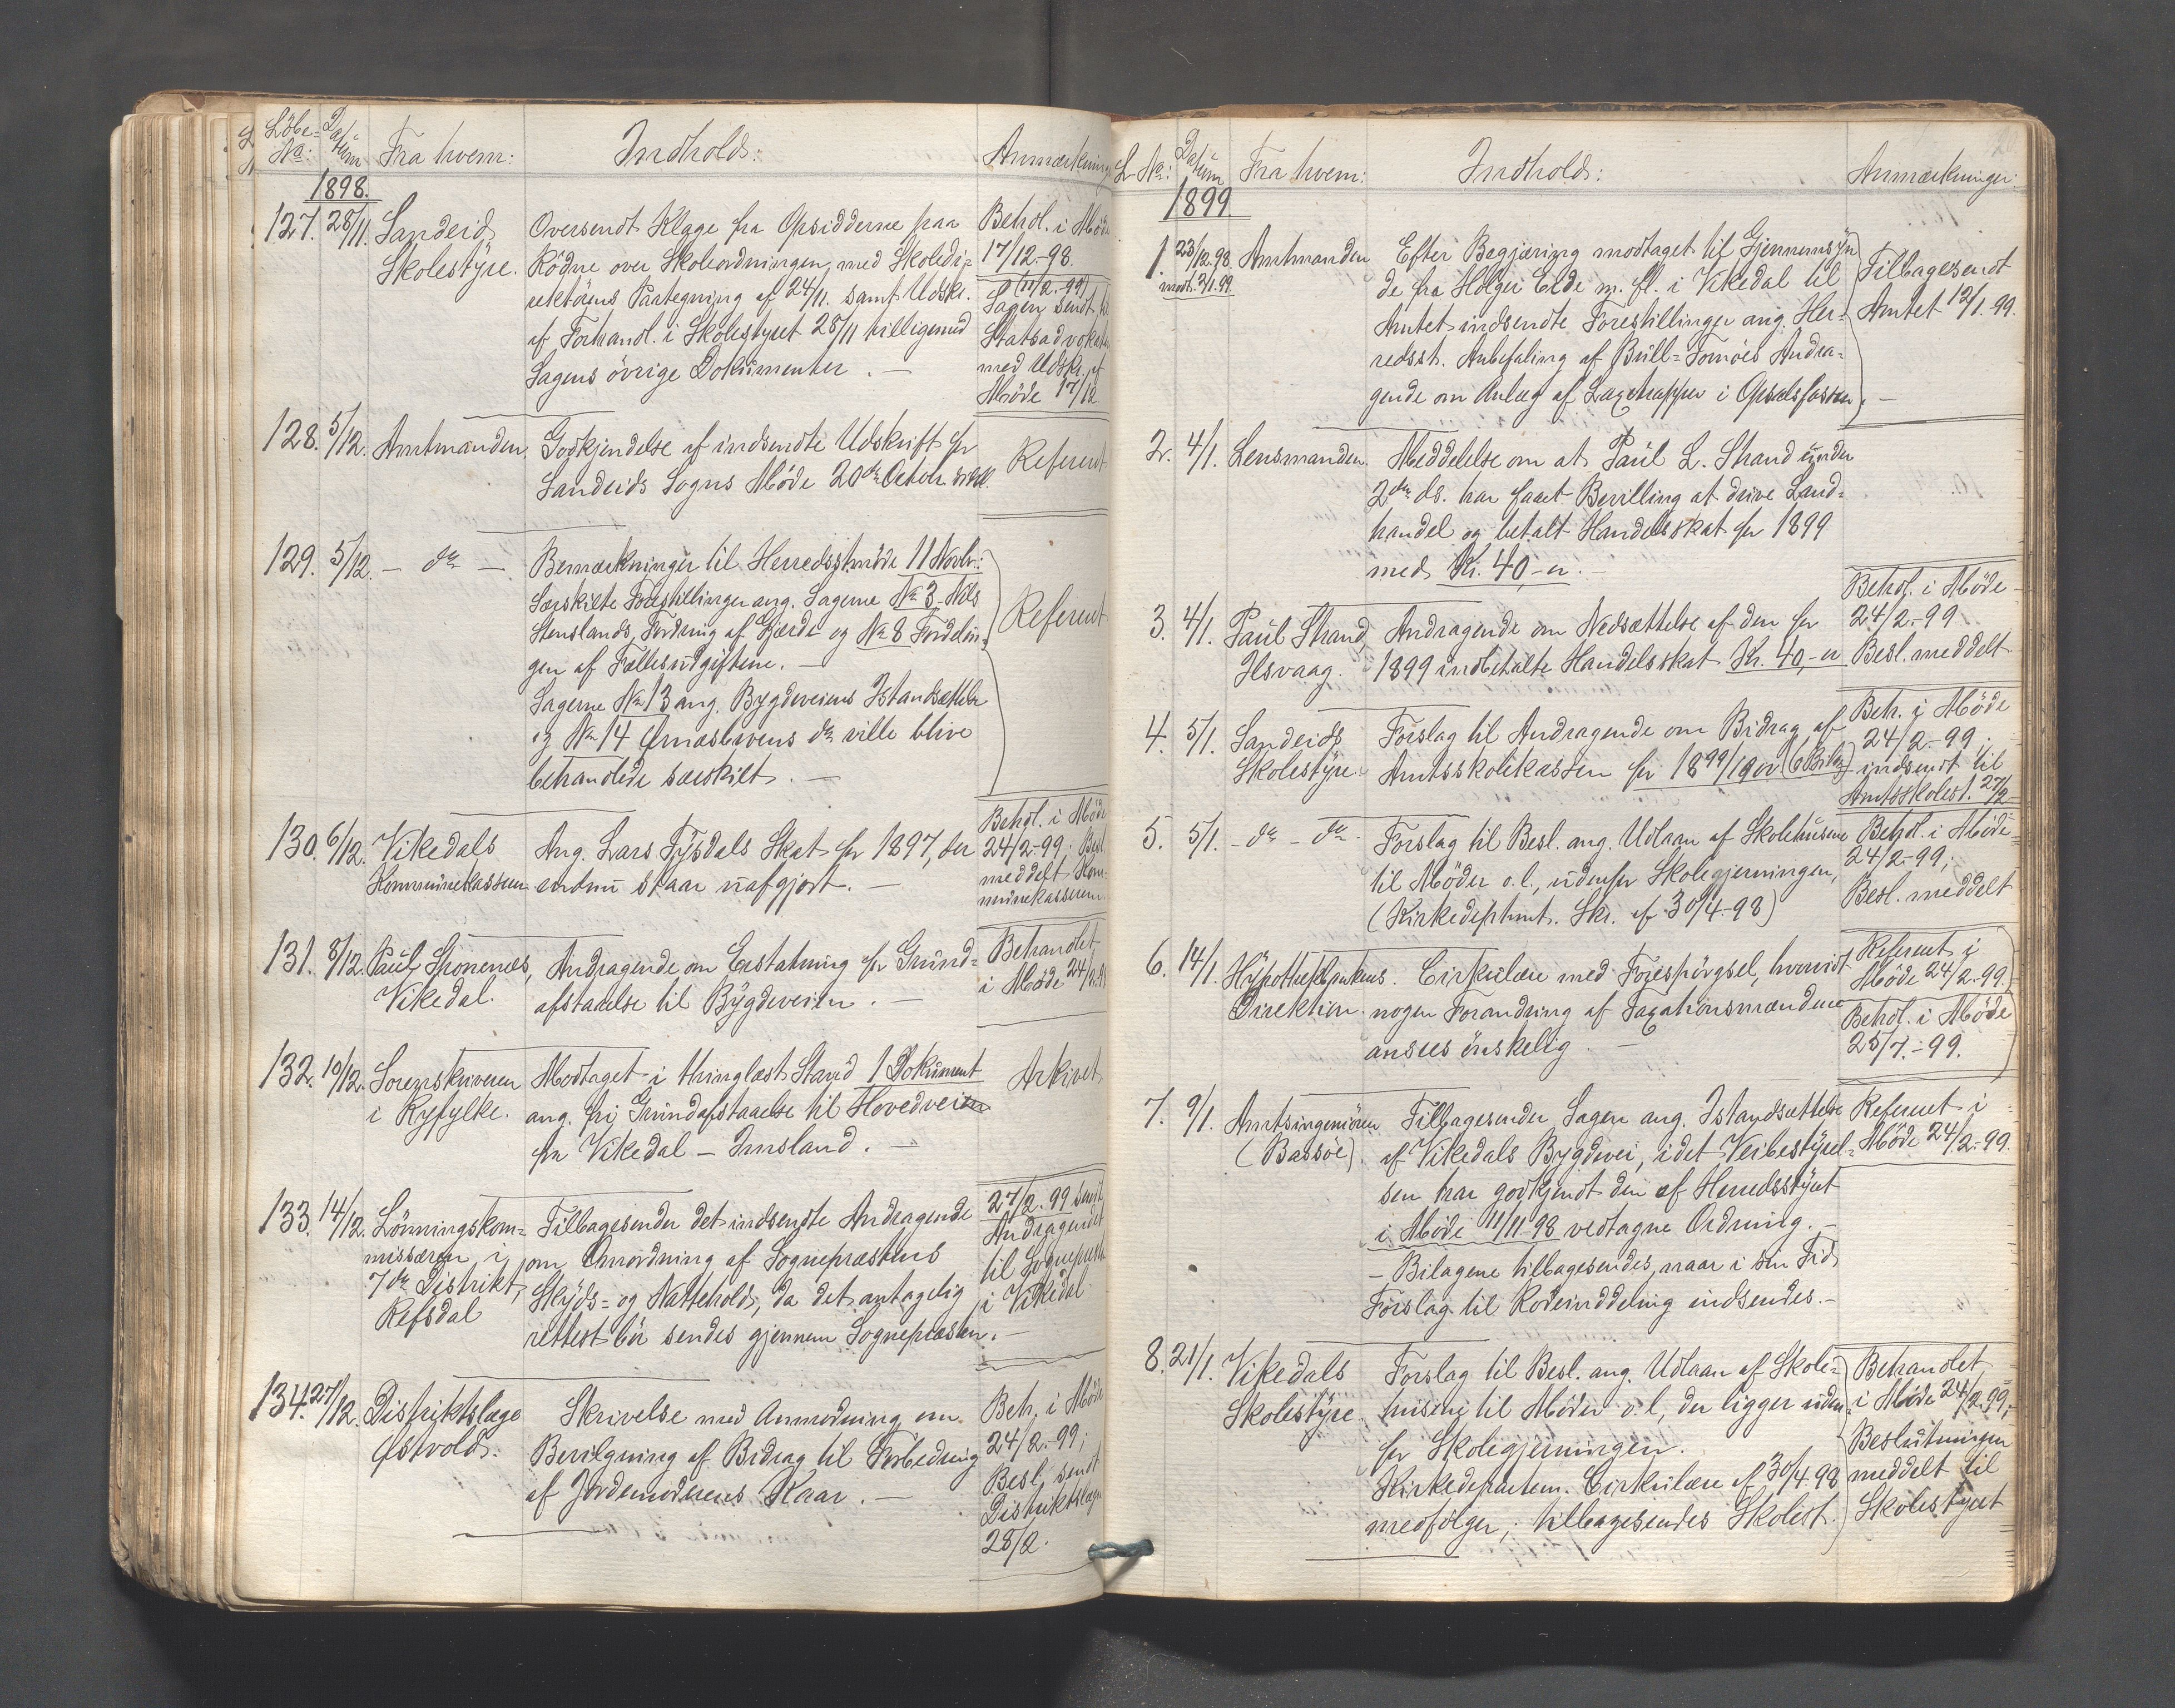 Löbe= Datum Fra hvem: Indhold: Anmærkninger
No:
1898.
127. 28/11. Sandeid Skolestyre.
Oversendt Klage fra Opsidderne paa
Rödne over Skoleordningen, med Skoledi=
rektörens Paategning af 24/11. samt Udskr.
af Forhandl. i Skolestyret 28/11 tilligemed
Sagens övrige Dokumenter. —
Behdl. i Möde
17/12-98.
(11/2-99)
Sagen sendt
Statsadvokaten
med Udskr. af
Möde 17/12
128. 5/12. Amtmanden.
Godkjendelse af indsendte Udskrift for
Sandeids Sogns Möde 20de Octob.
Referent
129. 5/12. — do —
Bemærkninger til Herredsstmöde 11 Novbr:
Særskilte Forestillinger ang. Sagerne No 3 Nils
Stenslands Fordring af Gjerde og No 8 Fordelin=
gen af Fællesudgifterne. —
Sagerne No 13 ang. Bygdeveiens Istandsættelse
og No 14 do ville blive
behandlede særskilt. —
Referent
130. 6/12. Vikedals
Kommunekasserer
Ang. Lars Tysdals Skat for 1897, der
endnu staar uafgjort. —
Behdl. i Möde
24/2-99; Besl.
meddelt Kom=
munekasseren.
131. 8/12. Paul Skonenes,
Vikedal.
Andragende om Erstatning for Grund=
afstaaelse til Bygdeveien. —
Behandlet
i Möde 24/2.99
132. 10/12. Sorenskriveren
i Ryfylke.
Modtaget i thinglæst Stand 1 Dokument
ang. fri Grundafstaaelse til Hovedveien
fra Vikedal — Imsland. —
Arkivet
133. 14/12. Lönningskom=
missæren i
7de Distrikt,
Refsdal
Tilbagesender det indsendte Andragende
om Omordning af Sognepræstens
Skyds= og Nattehold, da det antagelig
rettest bör sendes gjennem Sognepræsten. —
27/2. 99 sendt
Andragendet
til Sognepræsten
i Vikedal
134. 27/12. Distriktslæge
Østvold.
Skrivelse med Anmodning om
Bevilgning af Bidrag til Forbedring
af Jordemödrenes Kaar. —
Beh. i Möde
24/2.-99;
Besl. sendt
Distriktslægen
28/2.
L. No: Datum Fra hvem: Indhold: Anmærkninger:
1899.
1. 23/12.98 Amtmanden
modt. 2/1.99.
Efter Begjæring modtaget til Gjennemsyn
de fra Holger Eide m. fl. i Vikedal til
Amtet indsendte Forestillinger ang. Her=
redsst. Anbefaling af Büll=Tornöes Andra=
gende om Anlæg af Laxetrapper i Opsalsfossen. —
Tilbagesendt
Amtet 12/1.99.
2. 4/1. Lensmanden.
Meddelelse om at Paul L. Strand under
2den ds. har faaet Bevilling at drive Land=
handel og betalt Handelsskat for 1899
med Kr. 40,-er. —
3. 4/1. Paul Strand,
Ilsvaag.
Andragende om Nedsættelse af den for
1899 indbetalte Handelsskat Kr. 40,-er
Behdl. i Möde
24/2.-99
Besl. meddelt
4. 5/1. Sandeids
Skolestyre
Forslag til Andragende om Bidrag af
Amtsskolekassen for 1899/1900 (6 Bilag)
Beh. i Möde
24/2.-99;
indsendt til
Amtsskolest. 27/2
5. 5/1. — do — do —
Forslag til Besl. ang. Udlaan af Skolehusene
til Möder o.l., udenfor Skolegjerningen,
(Kirkedeptmt. Skr. af 30/4-98)
Behdl. i Möde
24/2-99;
Besl. meddelt
6. 14/1. Hypothekbankens
Direktion.
Cirkulære med Forespörgsel, hvorvidt
nogen Forandring af Taxationsmændene
ansees önskelig. —
Referent i
Möde 24/2.99.
Behdl. i Möde
25/7.-99.
7. 9/1. Amtsingeniören
(Bassöe).
Tilbagesender Sagen ang. Istandsættelse
af Vikedals Bygdevei, idet Veibestyrel=
sen har godkjendt den af Herredsstyret
i Möde 11/11-98 vedtagne Ordning. —
— Bilagene tilbagesendes, naar i sin Tid
Forslag til Rodeinddeling indsendes. —
Referent i
Möde 24/2.-99.
8. 21/1. Vikedals
Skolestyre.
Forslag til Besl. ang. Udlaan af Skole=
husene til Möder o.l., der ligger uden=
for Skolegjerningen.
Kirkedepartem. Cirkulære af 30/4.98
medfölger; tilbagesendes Skolest.
Behandlet
i Möde 24/2.99;
Beslutningen
meddelt til
Skolestyret